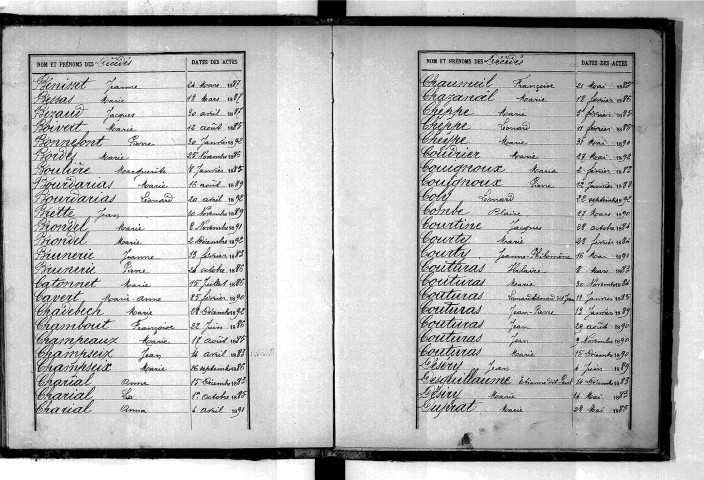 NOM ET PRÉNOMS DES Décédés DATES DES ACTES
Béniset Jeanne 24 Mars 1887
Bessas Marie 18 Mars 1887
Bizaud Jacques 20 avril 1887
Boivert Marie 12 août 1885
Bonnefont Pierre 30 Janvier 1892
Bordes Marie 25 Novembre 1886
Boulière Marguerite 8 Janvier 1885
Bourdarias Marie 16 août 1889
Bourdarias Léonard 20 avril 1892
Brette Jean 10 Novembre 1889
Briondel Marie 8 Novembre 1891
Briondel Marie 2 Décembre 1892
Brunerie Jeanne 13 février 1883
Brunerie Pierre 24 octobre 1886
Catonnet Marie 15 Juillet 1886
Cavert Marie-Anne 25 février 1890
Chadebech Marie 28 Décembre 1892
Chambout Françoise 22 Juin 1886
Champeaux Marie 17 août 1885
Champseix Jean 4 avril 1883
Champseix Marie 26 septembre 1886
Charial Anna 15 Décembre 1883
Charial 1er octobre 1885
Charial Anna 4 avril 1891
NOM ET PRÉNOMS DES Décédés DATES DES ACTES
Chaumeil Françoise 21 Mai 1885
Chazanoil Marie 18 février 1886
Cheppe Marie 5 février 1885
Cheppe Léonard 11 février 1885
Cheppe Marie 31 Mai 1890
Coudrier Marie 27 Mai 1892
Couignoux Maria 2 février 1887
Couignoux Pierre 12 Janvier 1888
Coly Léonard 22 septembre 1892
Combe Blaise 27 Mars 1890
Courtine Jacques 28 octobre 1884
Courty Marie 28 février 1884
Courty Jeanne-Philomène 16 Mai 1891
Couturas Hilaire 8 Mars 1883
Couturas Marie 30 Novembre 1884
Couturas dit Jean 11 Janvier 1885
Couturas Jean-Pierre 13 Janvier 1889
Couturas Jean 29 août 1890
Couturas Jean 9 Novembre 1890
Couturas Marie 15 Décembre 1890
Désery Jean 4 Juin 1889
Desguillaume Etienne dit Paul 14 Décembre 1883
Désiry Marie 14 Mai 1883
Duprat Marie 28 Mai 1885